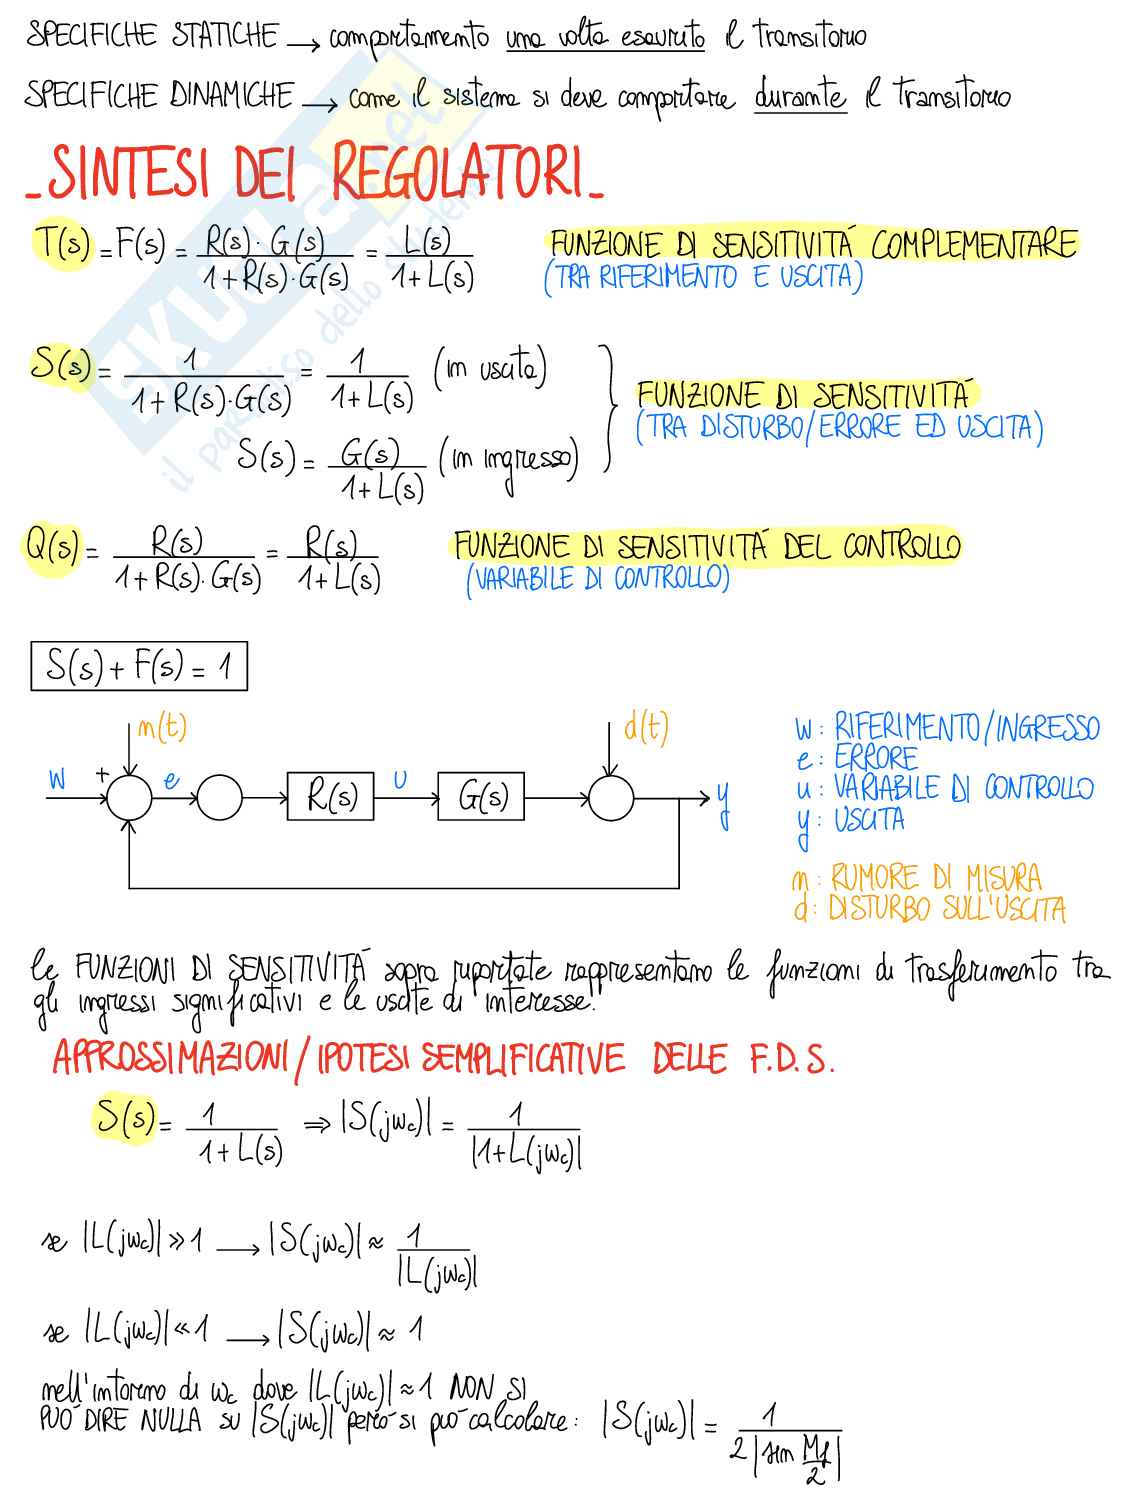 SPECIFICHE STATICHE → comportamento una volta esaurito il transitorio
SPECIFICHE DINAMICHE → come il sistema si deve comportare durante il transitorio
_SINTESI DEI REGOLATORI_
T(s) = F(s) = R(s)·G(s) / 1+R(s)·G(s) = L(s) / 1+L(s) FUNZIONE DI SENSITIVITÁ COMPLEMENTARE
(TRA RIFERIMENTO E USCITA)
S(s) = 1 / 1+R(s)·G(s) = 1 / 1+L(s) (in uscita)
FUNZIONE DI SENSITIVITÁ
(TRA DISTURBO/ERRORE ED USCITA)
S(s) = G(s) / 1+L(s) (in ingresso)
Q(s) = R(s) / 1+R(s)·G(s) = R(s) / 1+L(s) FUNZIONE DI SENSITIVITÁ DEL CONTROLLO
(VARIABILE DI CONTROLLO)
S(s) + F(s) = 1
n(t) d(t)
w + e R(s) u G(s) y
w: RIFERIMENTO/INGRESSO
e: ERRORE
u: VARIABILE DI CONTROLLO
y: USCITA
n: RUMORE DI MISURA
d: DISTURBO SULL'USCITA
le FUNZIONI DI SENSITIVITÁ sopra riportate rappresentano le funzioni di trasferimento tra
gli ingressi significativi e le uscite di "interesse".
APPROSSIMAZIONI/IPOTESI SEMPLIFICATIVE DELLE F.D.S.
S(s) = 1 / 1+L(s) ⇒ |S(jωc)| = 1 / |1+L(jωc)|
se |L(jωc)| ≫ 1 → |S(jωc)| ≈ 1 / |L(jωc)|
se |L(jωc)| ≪ 1 → |S(jωc)| ≈ 1
nell'intorno di ωc dove |L(jωc)| ≈ 1 NON SI
PUÓ DIRE NULLA su |S(jωc)| peró si puó calcolare: |S(jωc)| = 1 / 2|sin Mf/2|
SKUOLA.net
il paradiso dello studente